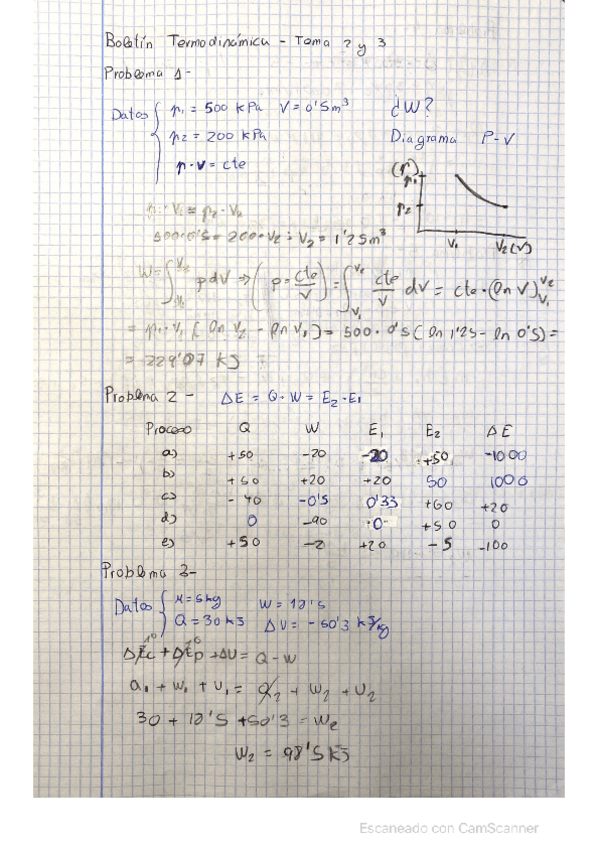 Boletín Termodinámica - Tema 2 y 3
Problema 1-
Datos { p₁ = 500 kPa V = 0'5m³ ¿W?
p₂ = 200 kPa Diagrama P-V
p·v = cte
(P) p₁
p₂
V₁ V₂ (V)
p₁·V₁ = p₂·V₂
500·0'5 = 200·V₂ ; V₂ = 1'25m³
W = ∫ᵥ₁ᵛ² p dV ⇒ (p = cte/V) = ∫ᵥ₁ᵛ² cte/V dV = cte·(ln V)ᵥ₁ᵛ²
= p₁·V₁ (ln V₂ - ln V₁) = 500·0'5 (ln 1'25 - ln 0'5) =
= 229'07 KJ
Problema 2 - ΔE = Q·W = E₂·E₁
Proceso Q W E₁ E₂ ΔE
a) +50 -20 -20 +50 -1000
b) +50 +20 +20 50 1000
c) -40 -0'5 0'33 +60 +20
d) 0 -90 0 +50 0
e) +50 -2 +20 -5 -100
Problema 3-
Datos { M = 5kg W = 18'5
Q = 30 kJ ΔU = -50'3 kJ/kg
ΔEc + ΔEp + ΔU = Q - W
Q₁ + W₁ + U₁ = Q₂ + W₂ + U₂
30 + 18'5 + 50'3 = W₂
W₂ = 98'5 KJ
Escaneado con CamScanner